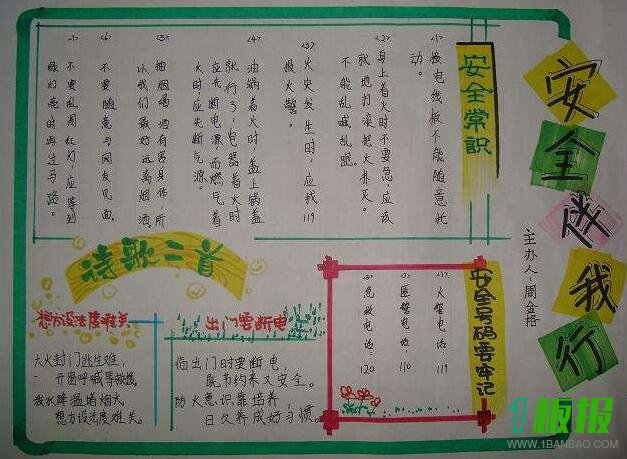 安全伴我行
主办人:周金格
安全常识
<1>、接电线板不能随意扯
动。
<2>、身上着火时不要急,应该
就地打滚把火扑灭。
不能乱喊乱跑。
<3>、火灾发生时,应拨119
报火警。
<4>、油锅着火时,盖上锅盖
就行了,电器着火时
应先断电源,而燃气着
火时,应先断气源。
<5>、抽烟喝酒有害身体,所
以我们最好远离烟酒。
<6>、不要随意与网友见面。
<7>、不要乱闯红灯,应等到
绿灯亮时再过马路。
诗歌二首
想方设法度难关
大火封门逃生难,
开窗呼喊等救援。
泼水降温堵烟火,
想方设法度难关。
出门要断电
临出门时要断电,
既节约来又安全。
防火意识靠培养,
日久养成好习惯。
安全号码要牢记
<1>、火警电话:119
<2>、匪警电话:110
<3>、急救电话:120
1板报
WWW.1BANBAO.COM